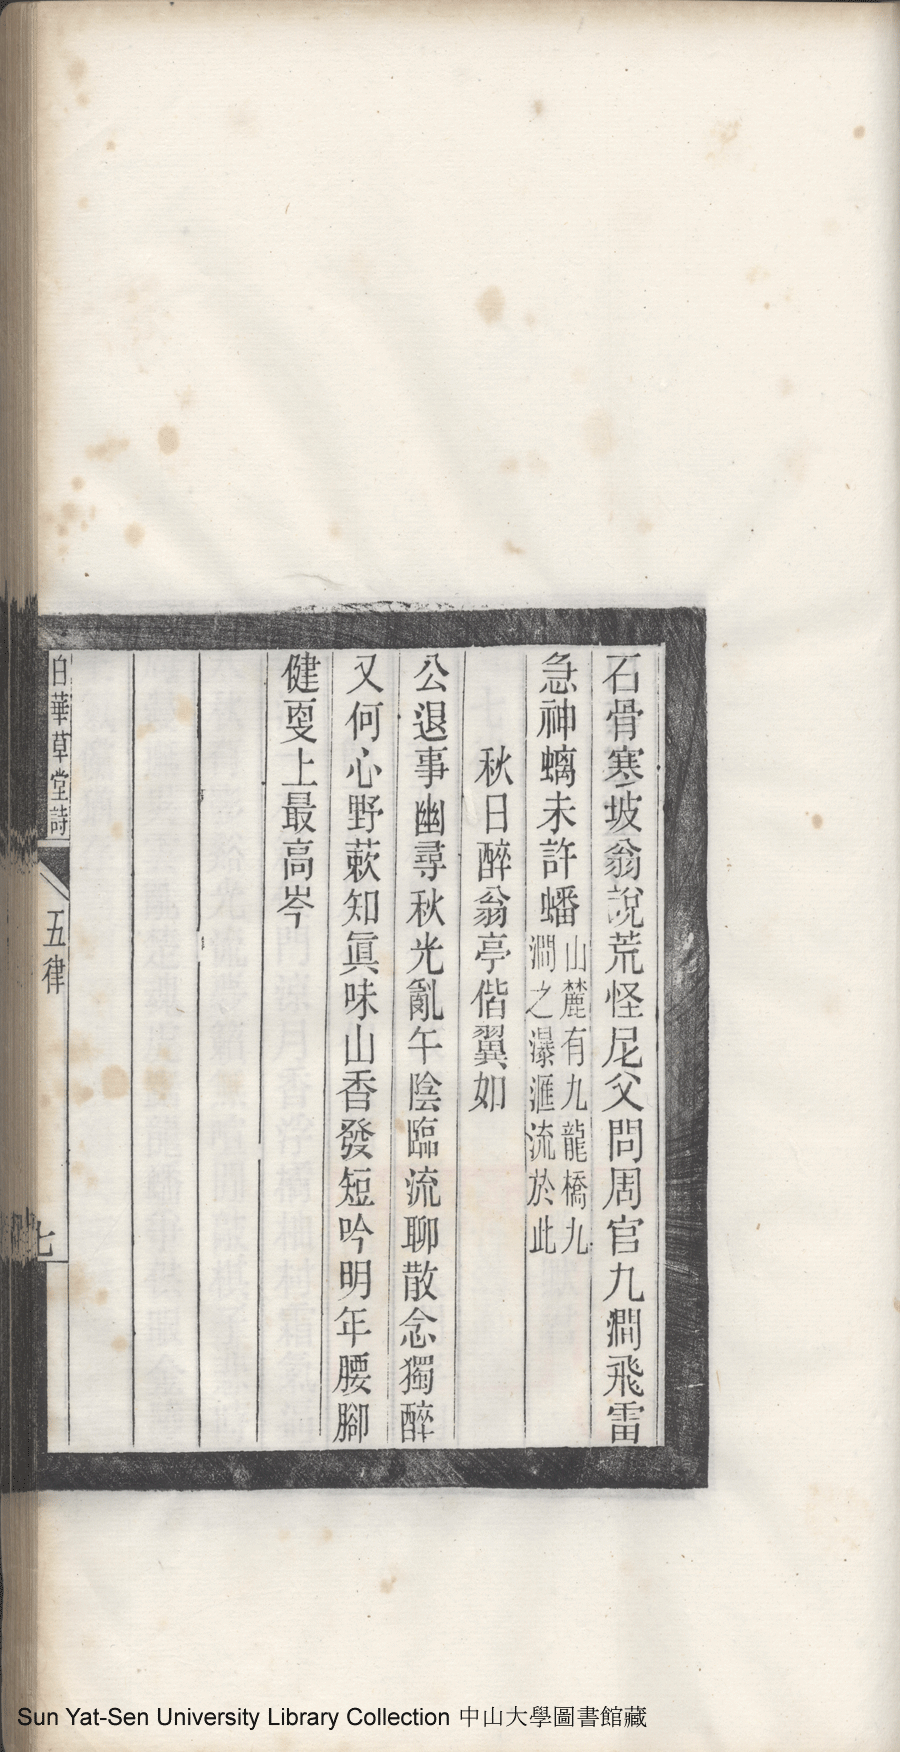 石骨寒坡翁說荒怪尼父問周官九澗飛雷
急神螭未許蟠山麓有九龍橋九
澗之瀑滙流於此
秋日醉翁亭偕翼如
公退事幽尋秋光亂午陰臨流聊散念獨醉
又何心野蔌知眞味山香發短吟明年腰腳
健更上最高岑
白華草堂詩
五律
七
Sun Yat-Sen University Library Collection 中山大學圖書館藏